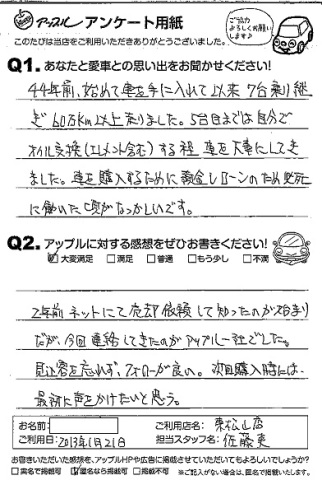 アップル アンケート用紙
このたびは当店をご利用いただきありがとうございました。
ご協力
よろしくお願い
します♪
Q1. あなたと愛車との思い出をお聞かせください!
44年前、始めて車を手に入れて以来 7台乗り継
ぎ 60万km以上走りました。5台目までは自分で
オイル交換(エレメント含む)する程 車を大事にしてき
ました。車を購入するために頭金しローンのため必死
に働いた頃がなつかしいです。
Q2. アップルに対する感想をぜひお書きください!
☑大変満足 □満足 □普通 □もう少し □不満
2年前 ネットにて売却依頼して知ったのが始まり
だが、今回連絡してきたのがアップル一社でした。
見込客を忘れず、フォローが良い。次回購入時には、
最初に声をかけたいと思う。
お名前: ご利用店名: 東松山店
ご利用日:2013年1月21日 担当スタッフ名:佐藤
お書きいただいた感想を、アップルHPや広告に掲載させていただいてもよろしいでしょうか?
□実名で掲載可 ☑匿名なら掲載可 □掲載不可 ※ご記入がない場合は、匿名で掲載いたします。